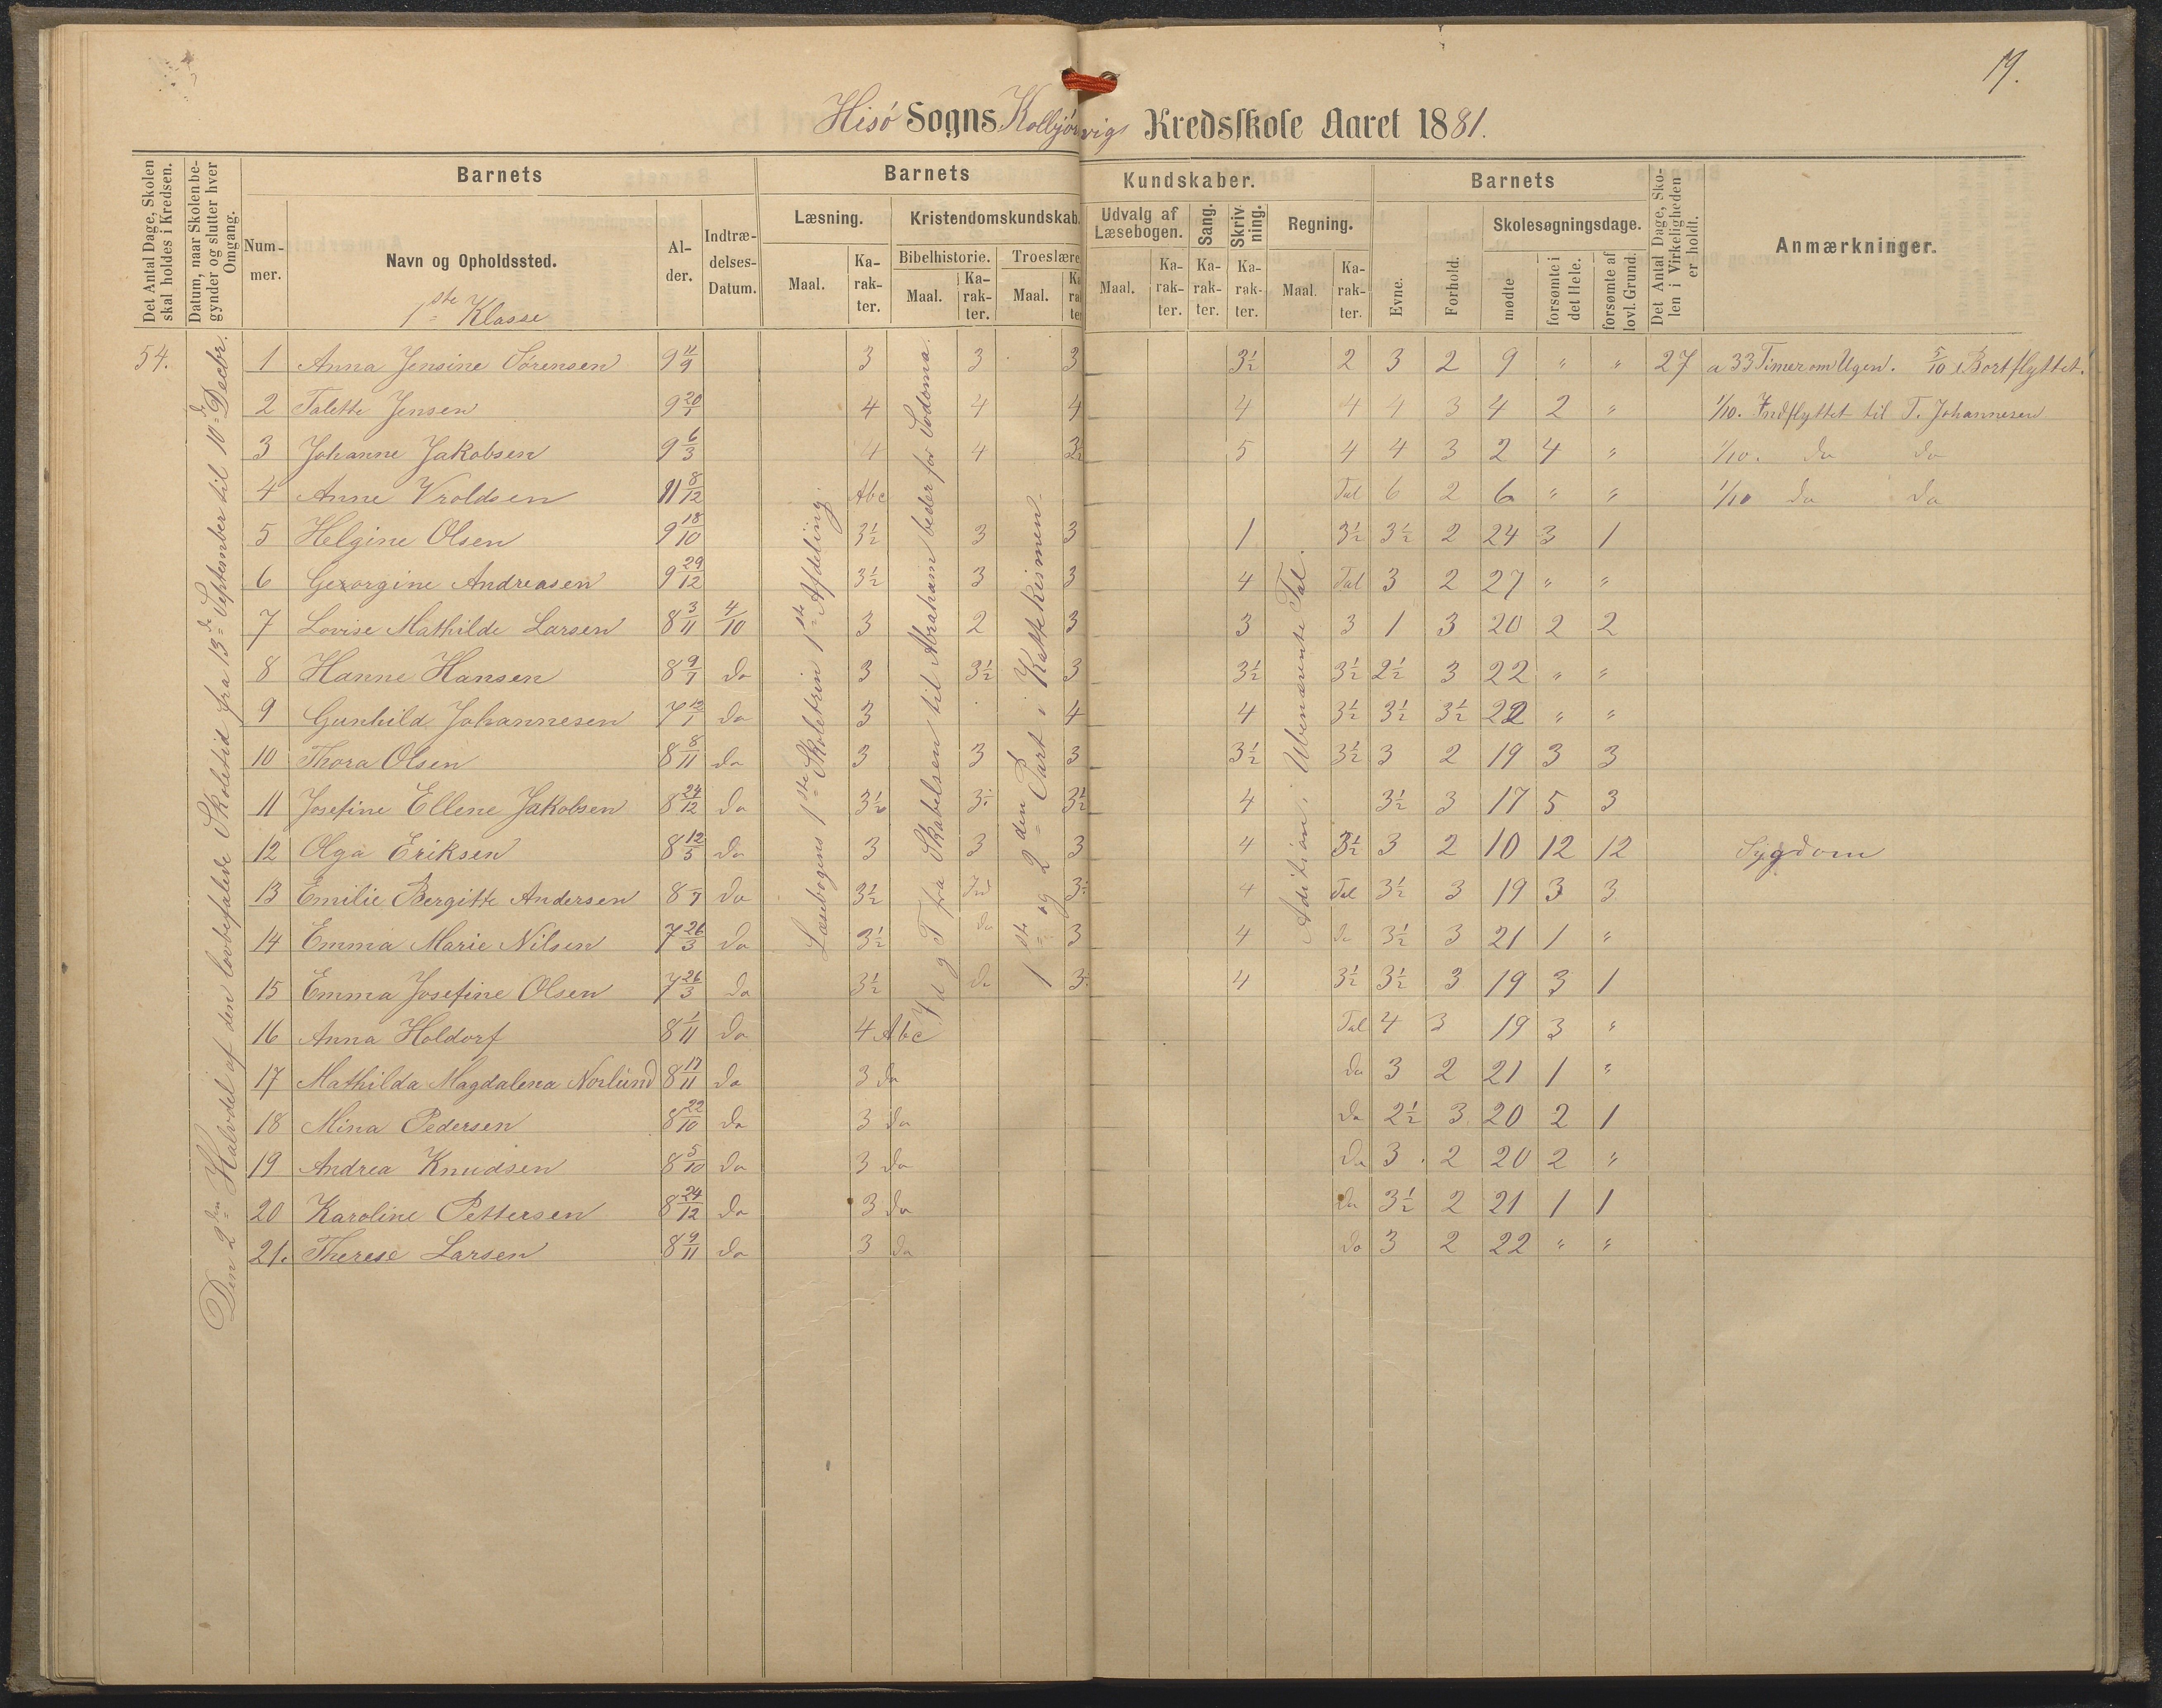 19.
Hisø Sogns Kolbjørnsvigs Kredsskole Aaret 1881.
Det Antal Dage, Skolen skal holdes i Kredsen.
Datum, naar Skolen begynder og slutter hver Omgang.
Barnets
Nummer.
Navn og Opholdssted.
1ste Klasse
Alder.
Indtrædelses-Datum.
Barnets Kundskaber.
Læsning.
Maal.
Karakter.
Kristendomskundskab.
Bibelhistorie.
Maal.
Karakter.
Troeslære
Maal.
Udvalg af Læsebogen.
Maal.
Karakter.
Sang.
Karakter.
Skrivning.
Karakter.
Regning.
Maal.
Karakter.
Barnets
Evne.
Forhold.
Skolesøgningsdage.
mødte
forsømte i det Hele.
forsømte af lovl. Grund.
Det Antal Dage, Skolen i Virkeligheden er holdt.
Anmærkninger.
54.
Den 2den Halvdel af den lovbefalede Skoletid fra 13de September til 10de Decbr.
Læsebogens 1ste Skoletrin 1ste Afdeling.
fra Skabelsen til Abraham beder for Sodoma.
1ste og 2den Part i Kattekismen.
Adition i Ubenævnte Tal.
1 Anna Jensine Sørensen 9 11/9 3 3 3 3½ 2 3 2 9 " " 27 a 33 Timer om Ugen. 5/10 Bortflyttet.
2 Talette Jensen 9 20/1 4 4 4 4 4 4 3 4 2 " 1/10. Indflyttet til T. Johannesen
3 Johanne Jakobsen 9 6/3 4 4 3½ 5 4 4 3 2 4 " 1/10. do do
4 Anne Vroldsen 11 8/12 Abc Tal 6 2 6 " " 1/10 do do
5 Helgine Olsen 9 18/10 3½ 3 3 1 3½ 3½ 2 24 3 1
6 Georgine Andreasen 9 29/12 3½ 3 3 4 Tal 3 2 27 " "
7 Lovise Mathilde Larsen 8 3/11 4/10 3 2 3 3 3 1 3 20 2 2
8 Hanne Hansen 8 9/7 do 3 3½ 3 3½ 3½ 2½ 3 22 " "
9 Gunhild Johannesen 7 12/1 do 3 4 4 3½ 3½ 3½ 22 " "
10 Thora Olsen 8 8/11 do 3 3 3 3½ 3½ 3 2 19 3 3
11 Josefine Ellene Jakobsen 8 24/12 do 3½ 3½ 3½ 4 3½ 3 17 5 3
12 Olga Eriksen 8 12/5 do 3 3 3 4 3½ 3 2 10 12 12 Sygdom
13 Emilie Bergitte Andersen 8 do 3½ 3½ 4 Tal 3½ 3 19 3 3
14 Emma Marie Nilsen 7 26/3 do 3½ do 3 4 do 3½ 3 21 1 "
15 Emma Josefine Olsen 7 26/3 do 3½ do 3½ 4 3½ 3½ 3 19 3 1
16 Anna Holdorf 8 1/11 do 4 Abc Tal 4 3 19 3 "
17 Mathilda Magdalena Norlund 8 17/11 do 3 do do 3 2 21 1 "
18 Mina Pedersen 8 22/10 do 3 do do 2½ 3 20 2 1
19 Andrea Knudsen 8 5/10 do 3 do do 3 2 20 2 "
20 Karoline Pettersen 8 24/12 do 3 do do 3½ 2 21 1 1
21. Therese Larsen 8 9/11 do 3 do do 3 2 22 " "